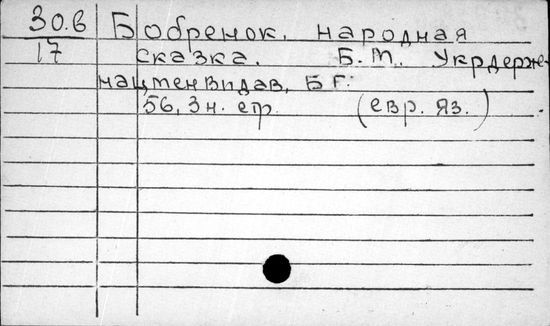 30.6 Бобренок. народная
17 сказка. Б.М. Укрдерж-
нацменвидав, БГ.
56, 3 н. стр. (евр. яз.)